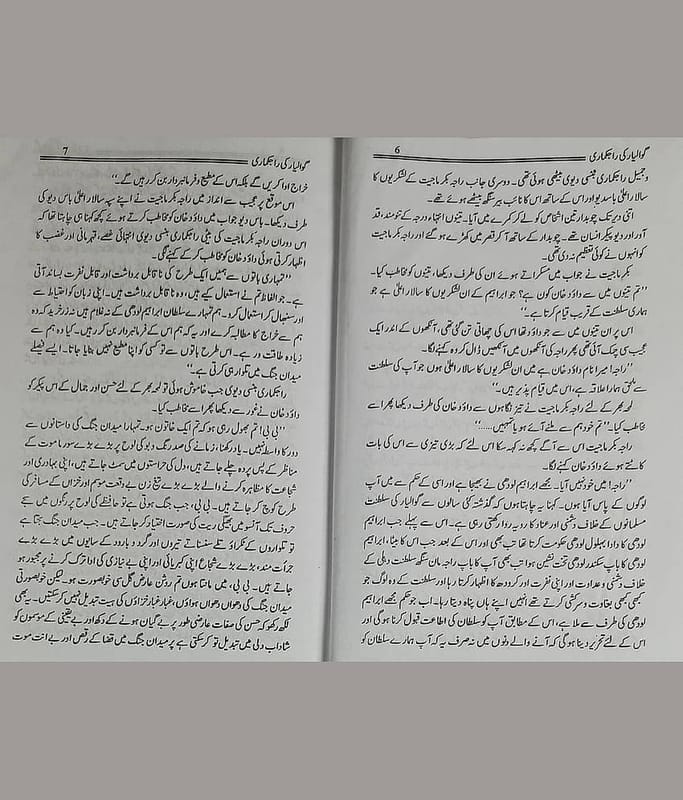 گوالیار کی راجکماری 6
و جمیل راجکماری بنسی دیوی بیٹھی ہوئی تھی۔ دوسری جانب راجہ بکرماجیت کے لشکریوں کا
سالار اعلیٰ باسدیو اور اس کے ساتھ اس کا نائب بیرسنگھ بیٹھے ہوئے تھے۔
اتنی دیر تک چوبدار تین اشخاص کو لے کر کمرے میں آیا۔ تینوں انتہا درجہ کے تنومند، قد
آور اور دیو پیکر انسان تھے۔ چوبدار کے ساتھ آ کر قصر میں کھڑے ہو گئے اور راجہ بکرماجیت
کو انہوں نے کوئی تعظیم نہ دی تھی۔
بکرماجیت نے جواب میں مسکراتے ہوئے ان کی طرف دیکھا، تینوں کو مخاطب کیا۔
”تم تینوں میں سے داؤد خان کون ہے؟ جو ابراہیم کے ان لشکریوں کا سالار اعلیٰ ہے جو
ہماری سلطنت کے قریب قیام کرتا ہے۔“
اس پر ان تینوں میں سے جو داؤد تھا اس کی چھاتی تن گئی تھی، آنکھوں کے اندر ایک
عجیب سی چمک آئی تھی پھر راجہ کی آنکھوں میں آنکھیں ڈال کر وہ کہنے لگا۔
”راجہ! میرا نام داؤد خان ہے میں ان لشکریوں کا سالار اعلیٰ ہوں جو آپ کی سلطنت
سے ملحق ہمارا علاقہ ہے، اس میں قیام پذیر ہیں۔“
لمحہ بھر کے لئے راجہ بکرماجیت نے تیز نگاہوں سے داؤد خان کی طرف دیکھا پھر اسے
مخاطب کیا۔ ”تم خود ہم سے ملنے آئے ہو یا تمہیں......“
راجہ بکرماجیت اس سے آگے کچھ نہ کہہ سکا اس لئے کہ بڑی تیزی سے اس کی بات
کاٹتے ہوئے داؤد خان کہنے لگا۔
”راجہ! میں خود نہیں آیا۔ مجھے ابراہیم لودھی نے بھیجا ہے اور اسی کے حکم سے میں آپ
لوگوں کے پاس آیا ہوں۔ کہنا یہ چاہتا ہوں کہ گذشتہ کئی سالوں سے گوالیار کی سلطنت
مسلمانوں کے خلاف دشمنی اور عناد کا رویہ روا رکھتی رہی ہے۔ اس سے پہلے جب ابراہیم
لودھی کا دادا بہلول لودھی حکومت کرتا تھا تب بھی اور اس کے بعد جب اس کا بیٹا، ابراہیم
لودھی کا باپ سکندر لودھی تخت نشین ہوا تب بھی آپ کا باپ راجہ مان سنگھ سلطنت دہلی کے
خلاف دشمنی و عداوت اور اپنی نفرت اور کردودھ کا اظہار کرتا رہا اور سلطنت کے وہ لوگ جو
کبھی کبھی بغاوت و سرکشی کرتے تھے انہیں اپنے ہاں پناہ دیتا رہا۔ اب جو حکم مجھے ابراہیم
لودھی کی طرف سے ملا ہے، اس کے مطابق آپ کو سلطان کی اطاعت قبول کرنا ہو گی اور
اس کے لئے تحریر دینا ہو گی کہ آنے والے دنوں میں نہ صرف یہ کہ آپ ہمارے سلطان کو
گوالیار کی راجکماری 7
خراج ادا کریں گے بلکہ اس کے مطیع و فرمانبردار بن کر رہیں گے۔“
اس موقع پر عجیب سے انداز میں راجہ بکرماجیت نے اپنے سپہ سالار اعلیٰ باس دیو کی
طرف دیکھا۔ باس دیو جواب میں داؤد خان کو مخاطب کرتے ہوئے کچھ کہنا ہی چاہتا تھا کہ
اس دوران راجہ بکرماجیت کی بیٹی راجکماری بنسی دیوی انتہائی غصے، قہرمانی اور غضب کا
اظہار کرتی ہوئی داؤد خان کو مخاطب کر کے کہنے لگی۔
”تمہاری باتوں سے ہمیں ایک طرح کی ناقابل برداشت اور قابل نفرت بساند آتی
ہے۔ جو الفاظ تم نے استعمال کیے ہیں، وہ ناقابل برداشت ہیں۔ اپنی زبان کو احتیاط سے
اور سنبھال کر استعمال کرو۔ ہم تمہارے سلطان ابراہیم لودھی کے نہ غلام ہیں نہ زر خرید کہ وہ
ہم سے خراج کا مطالبہ کرے اور یہ کہ ہم اس کے فرمانبردار بن کر رہیں۔ کیا وہ ہم سے
زیادہ طاقت ور ہے۔ اس طرح باتوں سے تو کسی کو اپنا مطیع نہیں بنایا جاتا۔ ایسے فیصلے
میدان جنگ میں تلوار ہی کرتی ہے۔“
راجکماری بنسی دیوی جب خاموش ہوئی تو لمحہ بھر کے لئے حسن اور جمال کے اس پیکر کو
داؤد خان نے غور سے دیکھا پھر اسے مخاطب کیا۔
”بی بی! تم بھول رہی ہو کہ تم ایک خاتون ہو۔ تمہارا میدان جنگ کی داستانوں سے
دور کا واسطہ نہیں۔ یاد رکھنا، زمانے کی صد رنگ دیو کی لوح پر بڑے بڑے سورما موت کے
مناظر کے پس پردہ چلے جاتے ہیں، دل کی حراستوں میں سمٹ جاتے ہیں، اپنی بہادری اور
شجاعت کا مظاہرہ کرنے والے بڑے بڑے تیغ زن بے وقعت موسم اور خزاں کے مسافر کی
طرح کوچ کر جاتے ہیں۔ بی بی، جب جنگ ہوتی ہے تو حافظے کی لوح پر رنگوں میں سجے
حروف تک آنسو میں بھیگی ریت کی صورت اختیار کر جاتے ہیں۔ جب میدان جنگ سجتا ہے
تو تلواروں کے ٹکراؤ تلے سنسناتے تیروں اور گرد و بارود کے سایوں میں بڑے بڑے
جرأت مند، بڑے بڑے شجاع اپنی کبریائی اور اپنی بے نیازی کی ادا ترک کرنے پر مجبور ہو
جاتے ہیں۔ بی بی، میں مانتا ہوں تم روشن عارض گل سی خوبصورت ہو۔ لیکن خوبصورتی
میدان جنگ کی دھواں دھواں ہواؤں، غبار غبار خزاؤں کی ہیت تبدیل نہیں کر سکتیں۔ یہ بھی
لکھ رکھو کہ حسن کی صفات عارضی طور پر بے گیان ہونے کے دکھ اور بے یقینی کے موسموں کو
شاداب دلی میں تبدیل تو کر سکتی ہے پر میدان جنگ میں قضا کے رقص اور بے انت موت